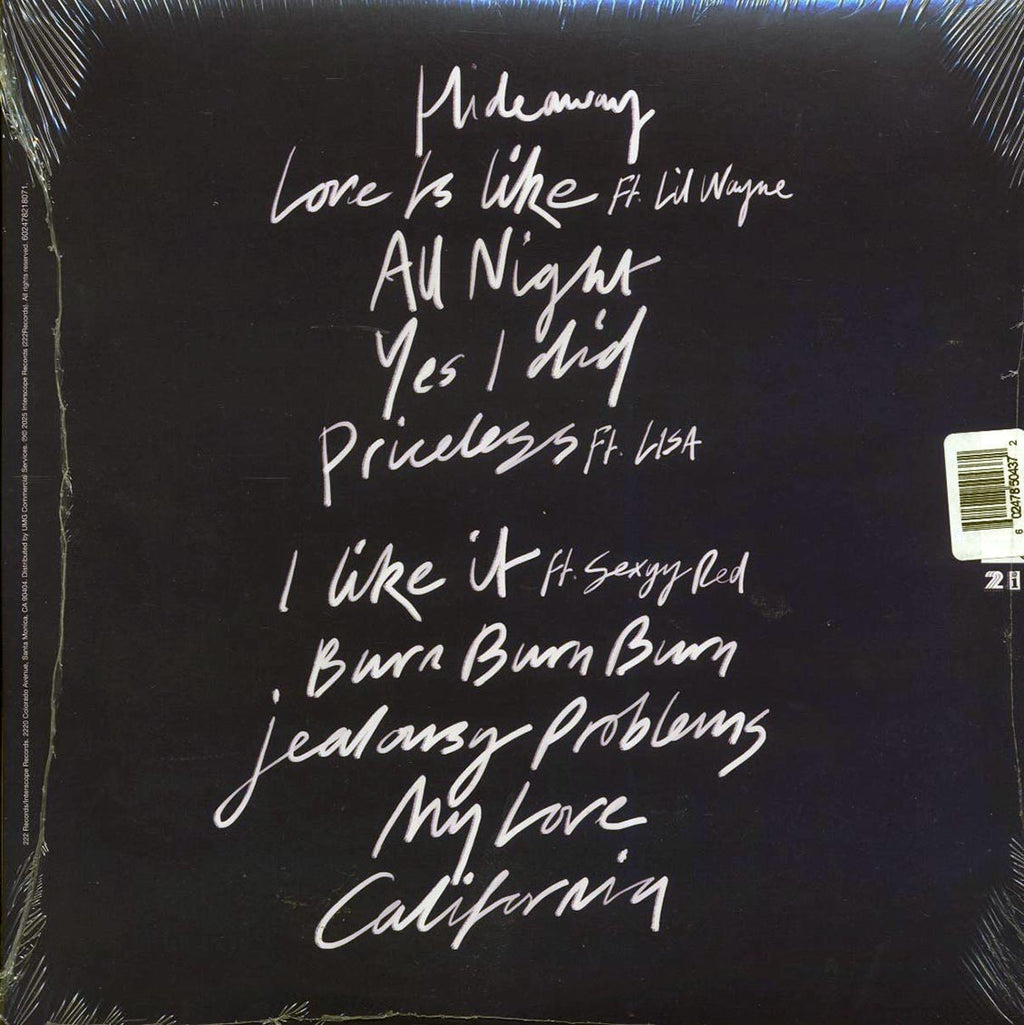 Hideaway
Love Is like Ft. Lil Wayne
All Night
Yes I did
Priceless Ft. LISA
I like it ft. Sexyy Red
Burn Burn Burn
jealousy Problems
My Love
California
222 Records/Interscope Records, 2220 Colorado Avenue, Santa Monica, CA 90404. Distributed by UMG Commercial Services. ℗© 2025 Interscope Records (222Records). All rights reserved. 602478218071.
6 02478 50437 2